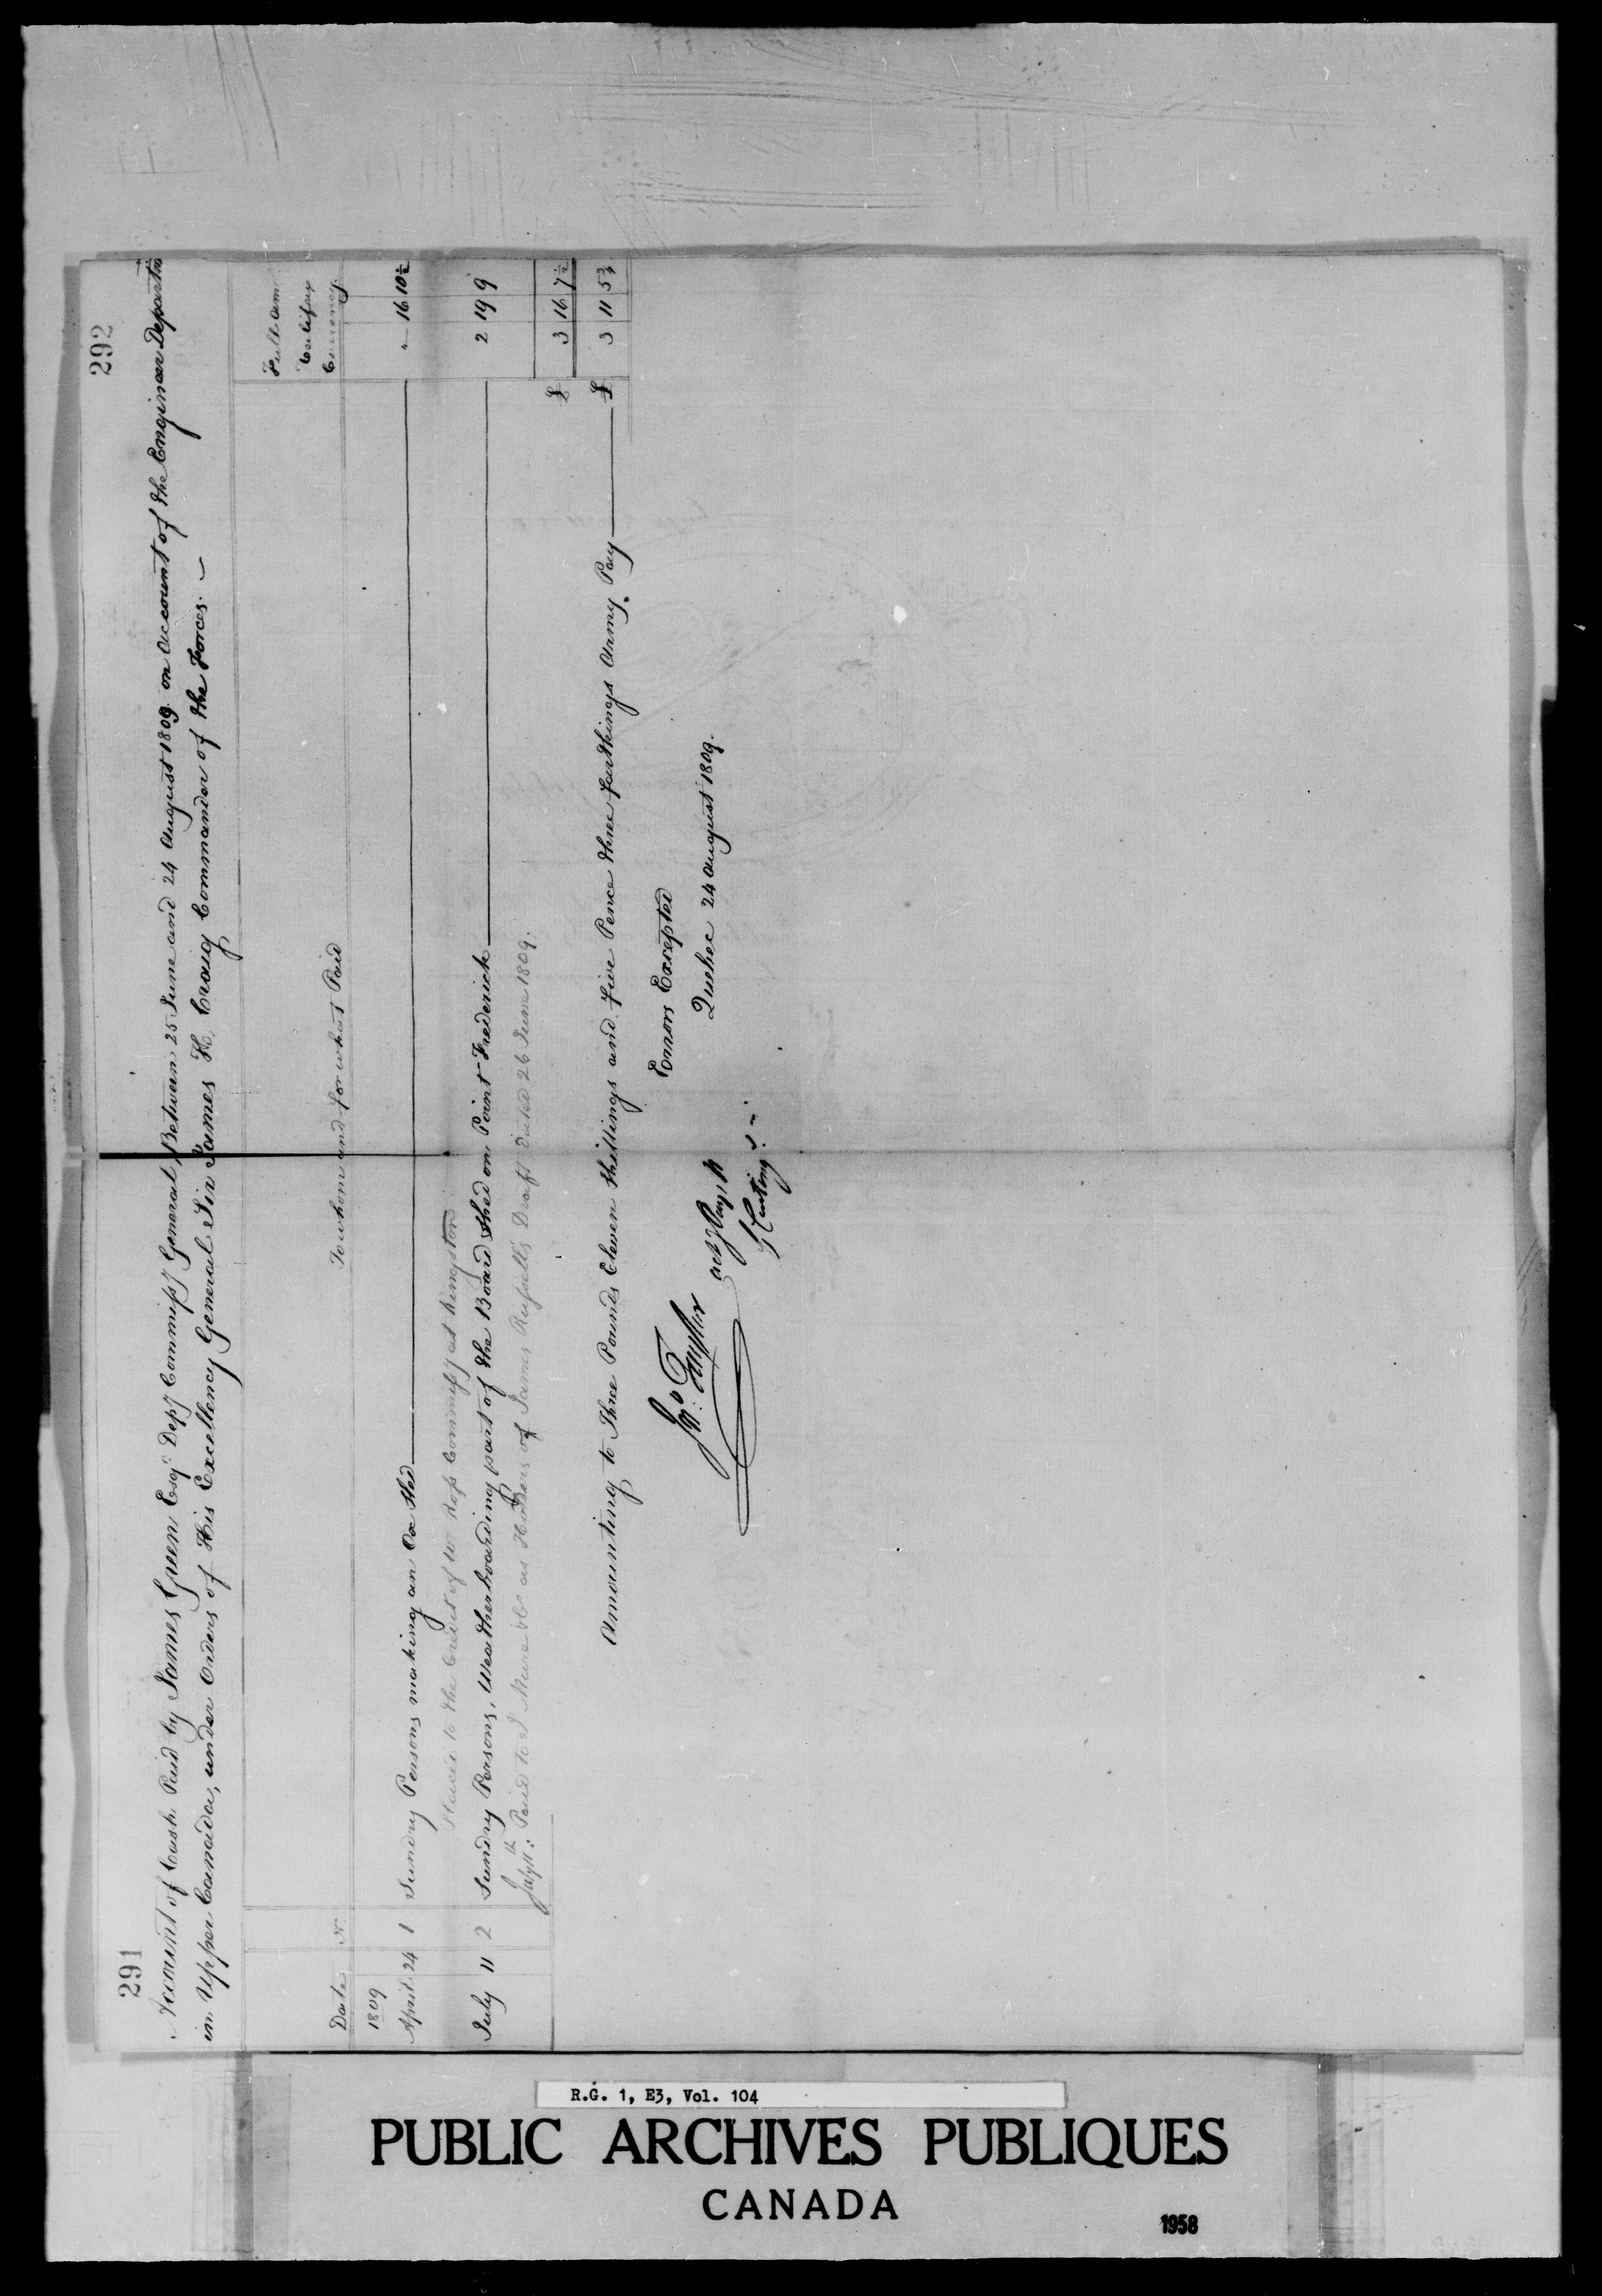 291
292
Account of Cash Paid by James Green Esqr. Depy Commissy General, Between 25 June and 24 August 1809 on Account of the Engineer Departmt
in Upper Canada, under Orders of His Excellency General Sir James H. Craig Commander of the Forces.
Date No. To whom and for what Paid Full am Halifax Currency
1809
April 24 1 Sundry Persons making an Ox Sled " 16 10½
Placed to the Credit of Wm Ross Commissy at Kingston
July 11 2 Sundry Persons, Weatherboarding part of the Board Shed on Point Frederick 2 19 9
July 11th: Paid to J Mure &Co as Holders of James Russell's Draft dated 26 June 1809.
£ 3 16 7½
Amounting to Three Pounds Eleven Shillings and five Pence three farthings Army Pay £ 3 11 5¾
Errors Excepted
Quebec 24 August 1809.
Jno. Taylor
R.G. 1, E3, Vol. 104
PUBLIC ARCHIVES PUBLIQUES
CANADA
1958